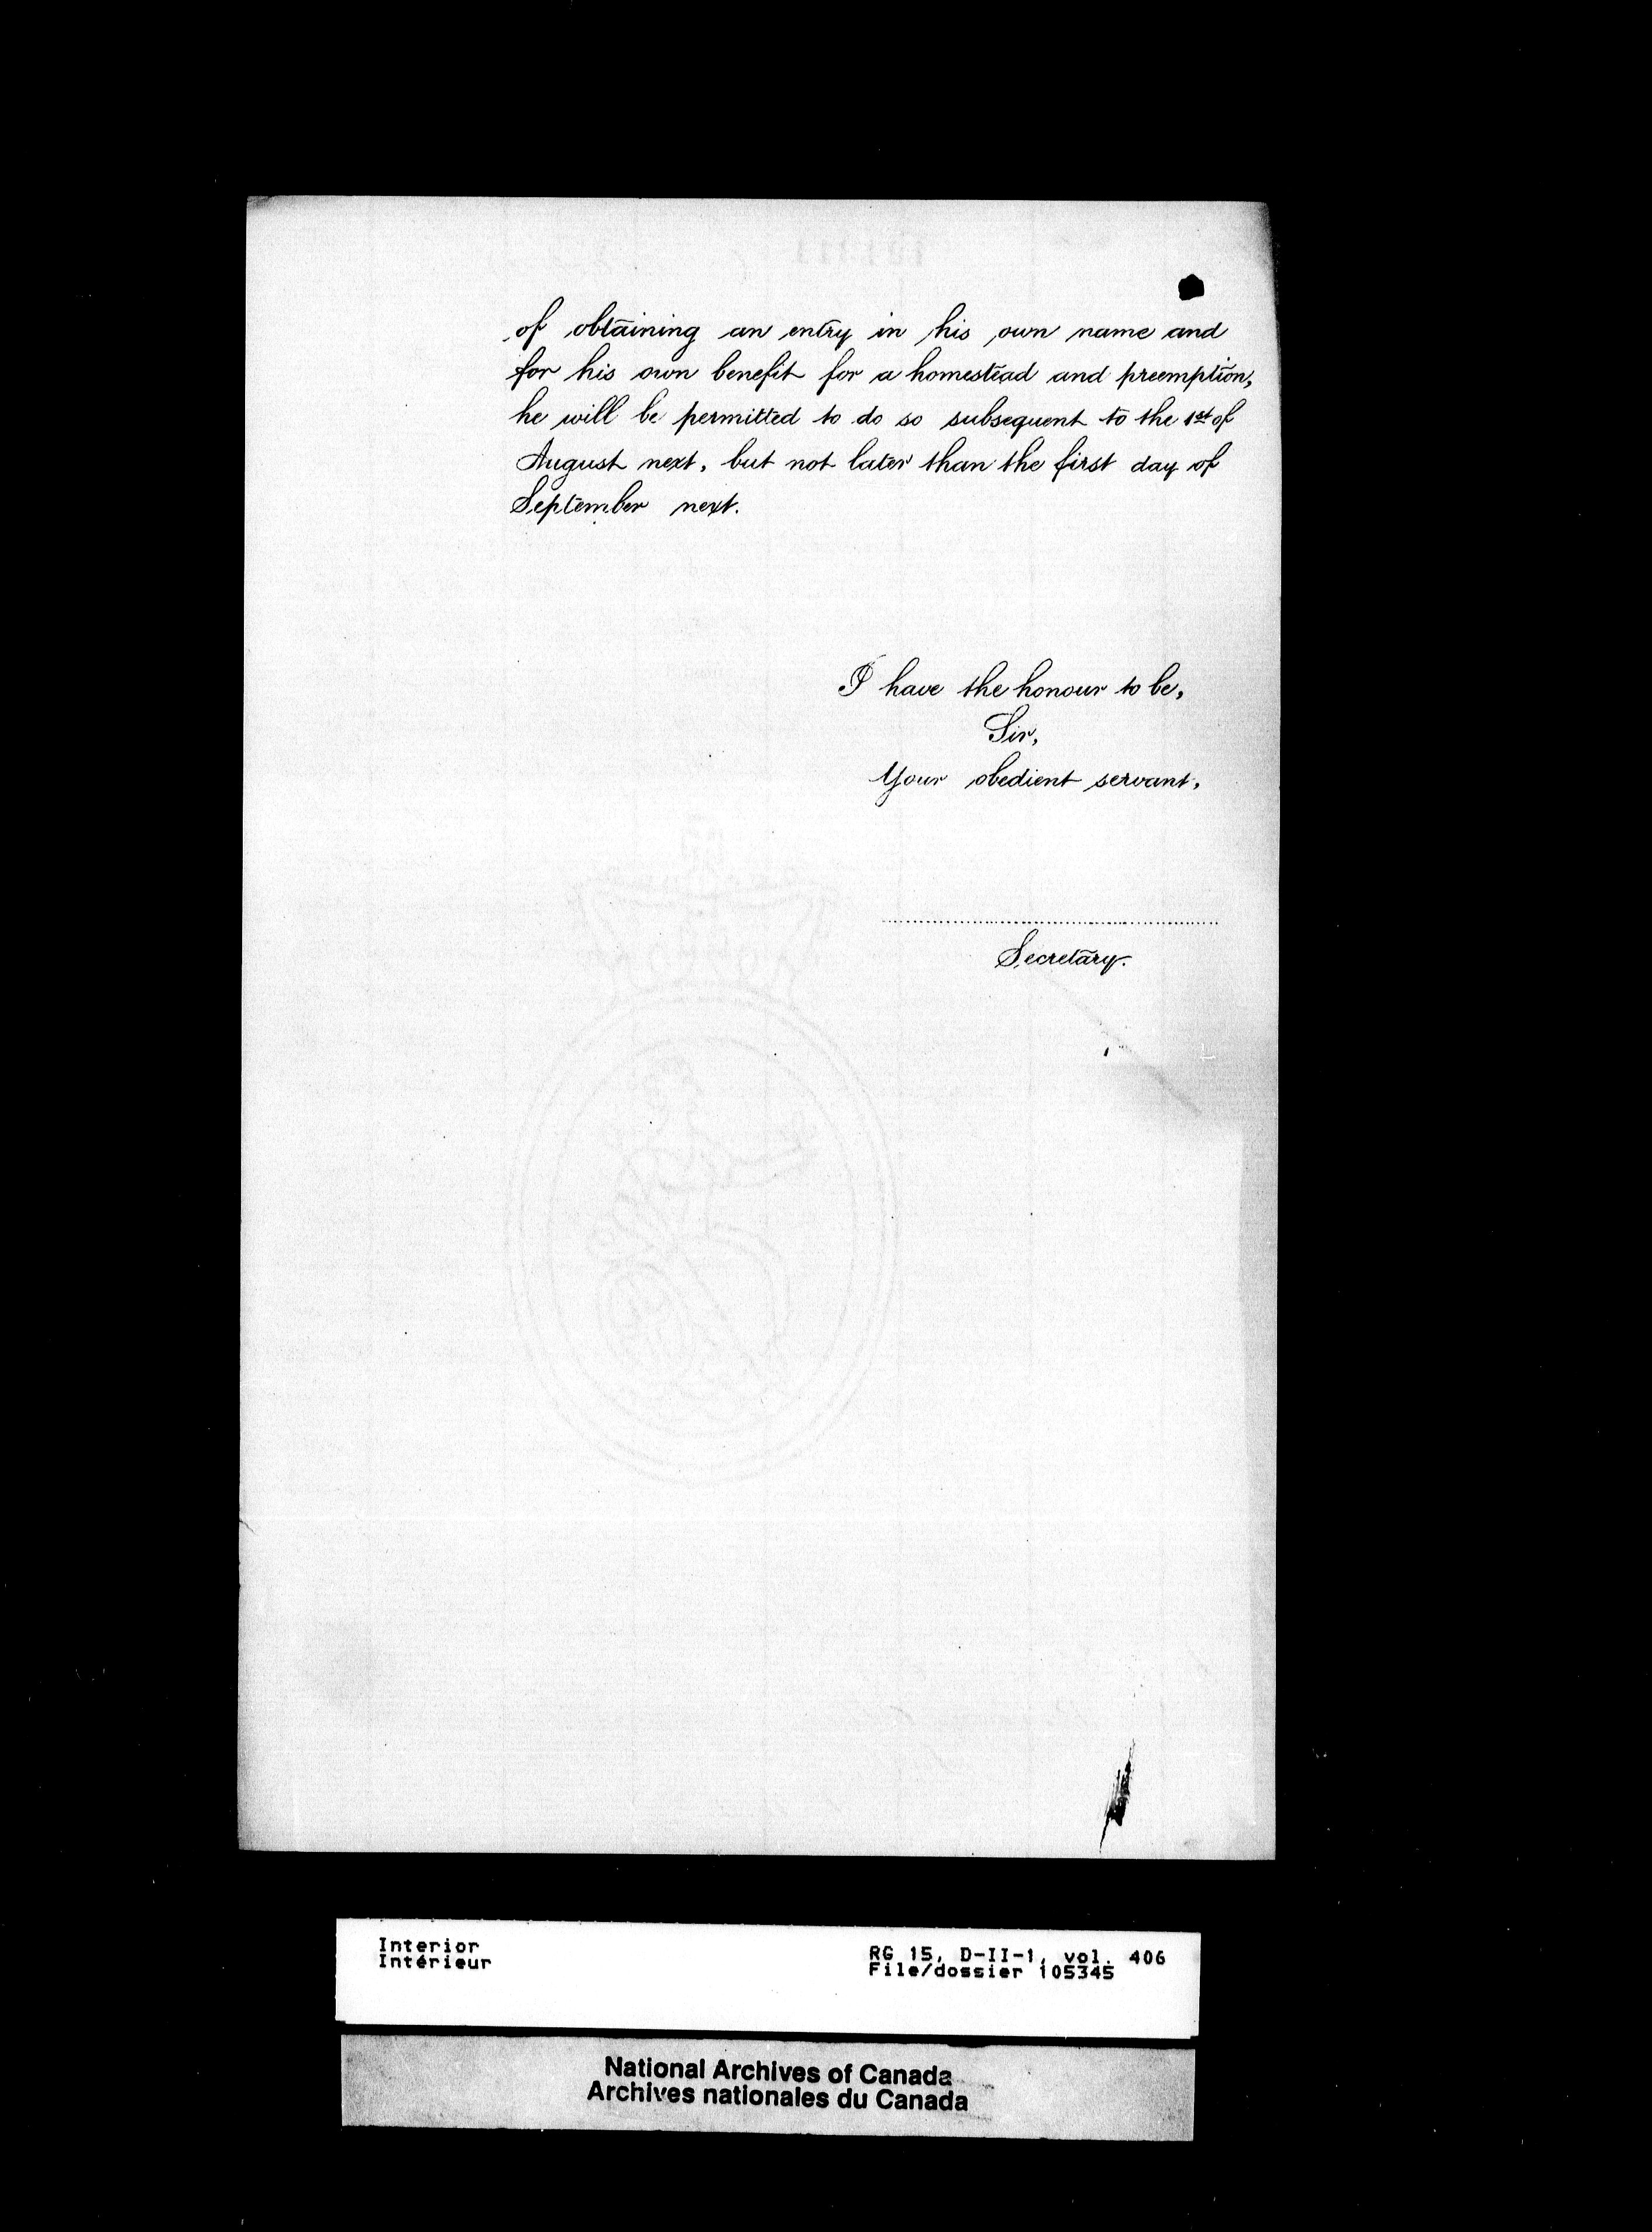 of obtaining an entry in his own name and
for his own benefit for a homestead and preemption,
he will be permitted to do so subsequent to the 1st of
August next, but not later than the first day of
September next.
I have the honour to be,
Sir,
Your obedient servant,
Secretary.
Interior
Intérieur
RG 15, D-II-1, vol. 406
File/dossier 105345
National Archives of Canada
Archives nationales du Canada